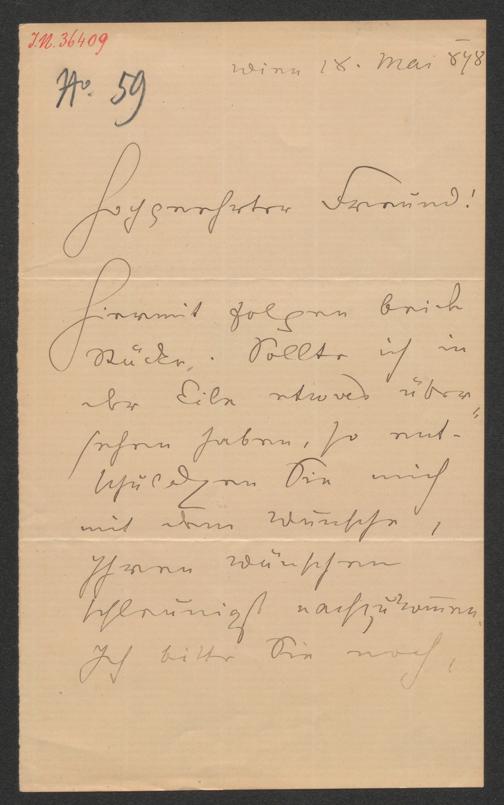 I.N. 36409
No. 59
Wien 18. Mai 878
Hochgeehrter Freund!
Hiermit folgen beide
Stücke. Sollte ich in
der Eile etwas über-
sehen haben, so ent-
schuldigen Sie mich
mit dem Wunsche,
Ihren Wünschen
schleunigst nachzukommen.
Ich bitte Sie noch,